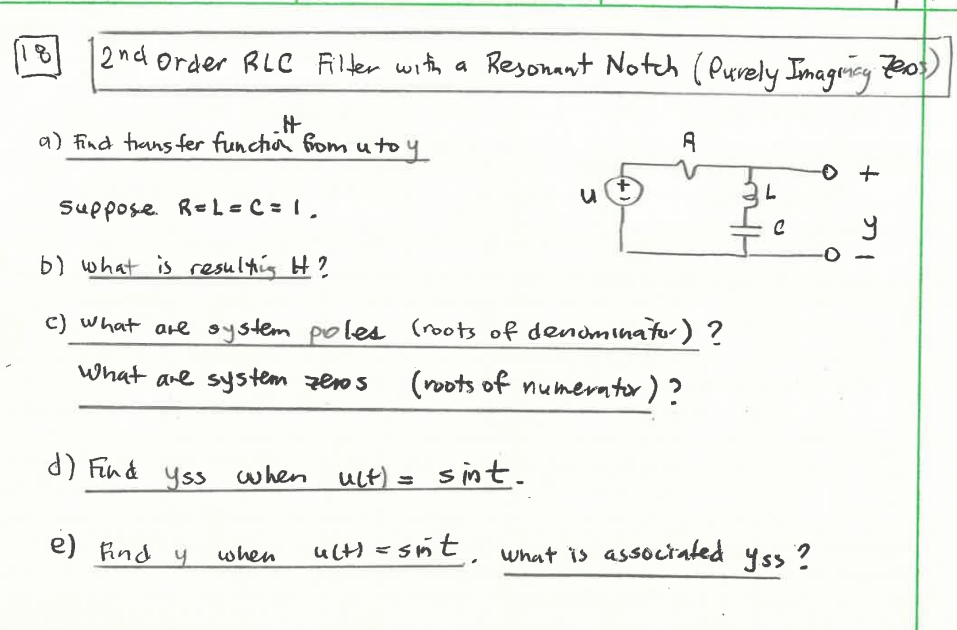 18 2nd Order RLC Filter with a Resonant Notch (Purely Imaginay Zeros)
a) Find transfer function H from u to y
suppose R=L=C=1.
b) what is resulting H?
c) what are system poles (roots of denominator)?
What are system zeros (roots of numerator)?
d) Find yss when u(t) = sin t.
e) Find y when u(t) = sin t. what is associated yss?
R
u
+
-
L
C
+
y
-